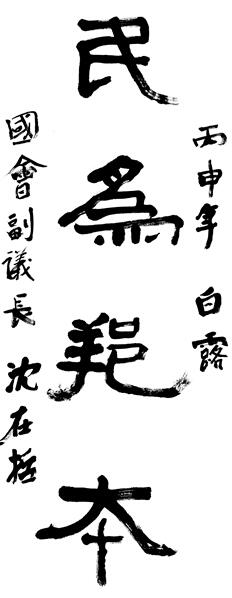 丙申年 白露
民為邦本
國會副議長 沈在哲